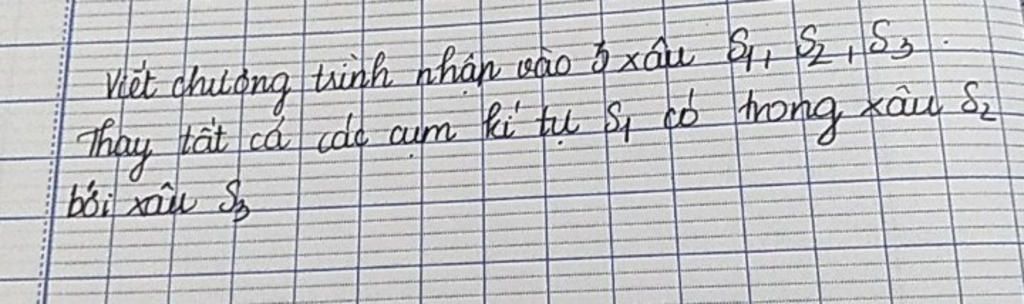 Viết chương trình nhận vào 3 xâu S1, S2, S3.
Thay tất cả các cụm kí tự S1 có trong xâu S2
bởi xâu S3